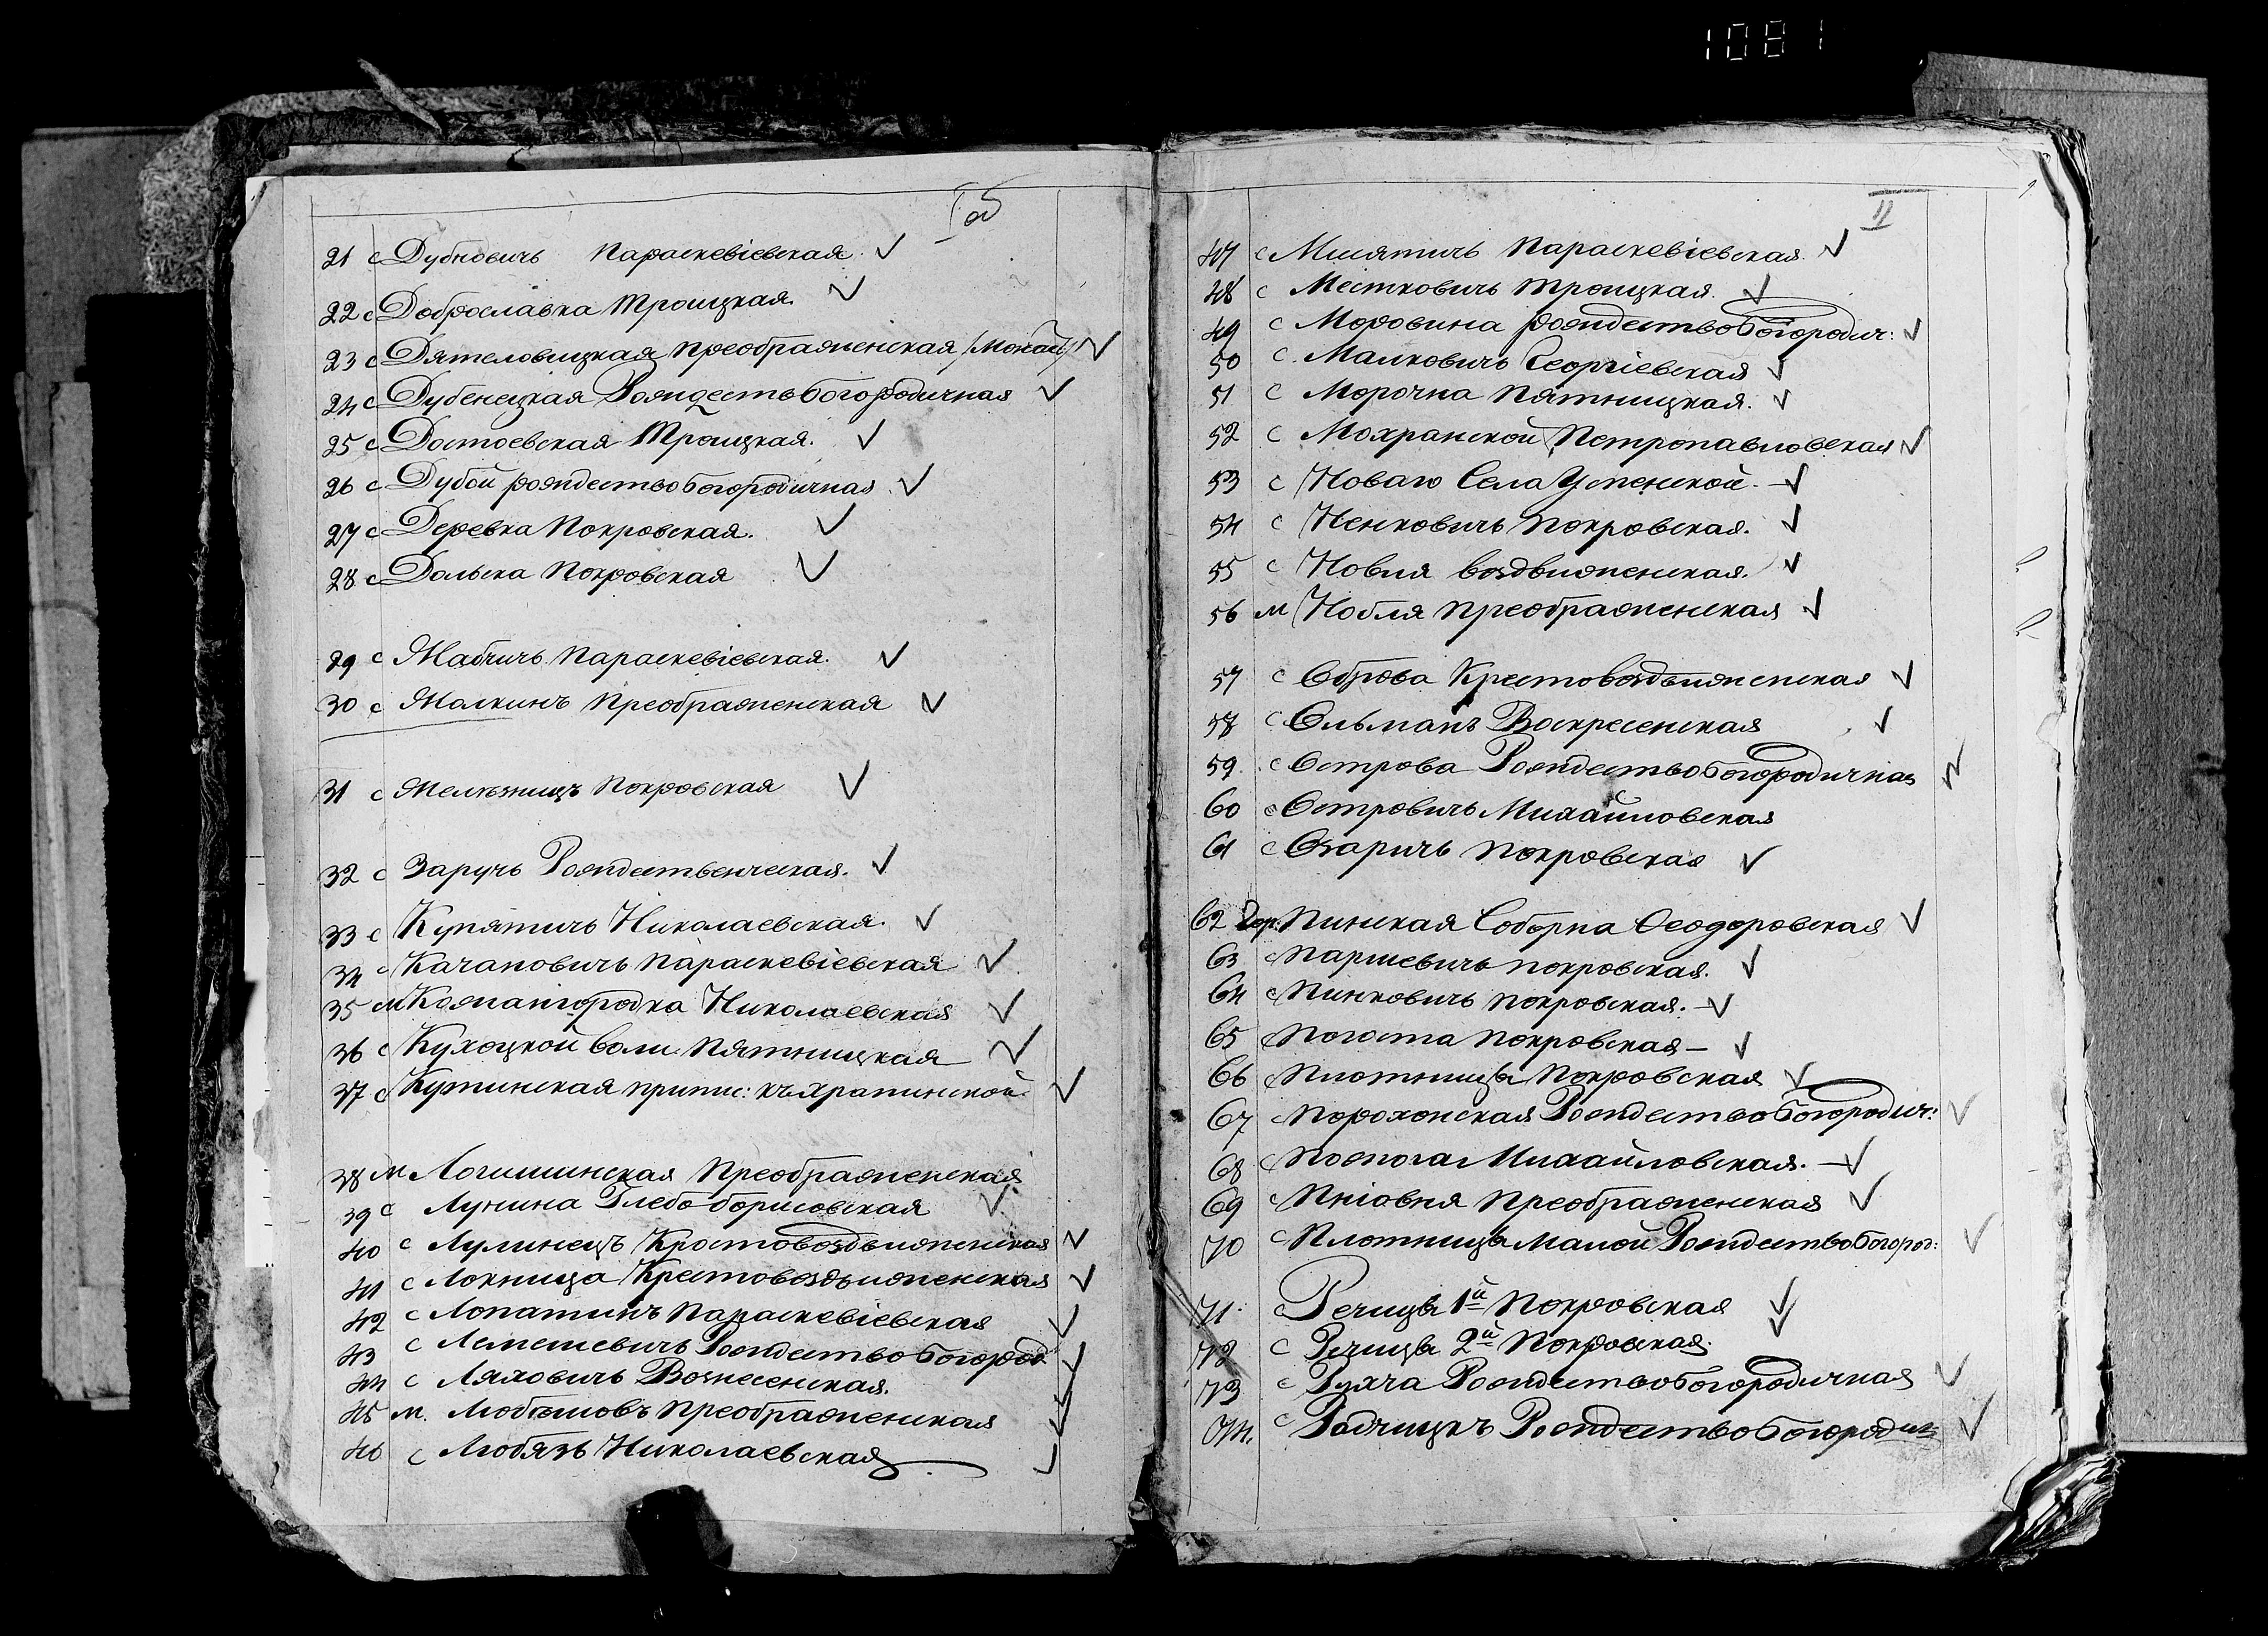 1081
I об
21 с Дубновичь Параскевіевская
22 с Доброславка Троицкая.
23 с Дятеловицкая Преображенская /Монас/
24 с Дубенецкая Рождество Богородичная
25 с Достоевская Троицкая.
26 с Дубой рождество богородичная
27 с Деревка Покровская.
28 с Дольска Покровская
29 с Жабчичь Параскевіевская.
30 с Жолкинъ Преображенская
31 с Мельзницъ Покровская
32 с Заручь Рождественческая.
33 с Купятичь Николаевская.
34 с Качановичь Параскевіевская
35 м Кожангородка Николаевская
36 с Кухоцкой воли Пятницкая
37 с Кутинская припис: къ храпинской
38 м Логишинская Преображенская
39 с Лунина Глебо-борисовская
40 с Лулинецъ Крестовоздвиженская
41 с Локница Крестовоздвиженская
42 с Лопатинъ Параскевіевская
43 с Лемешевичь Рождество богород
44 с Ляховичь Вознесенская.
45 м. Любешовъ Преображенская
46 с Любязь Николаевская
II
47 с Мисятичь Параскевіевская
48 с Местковичь Троицкая.
49 с Моровина рождество богородич:
50 с. Малковичь Георгіевская
51 с Морочна Пятницкая.
52 с Мохранской Петропавловская
53 с Новаго Села Успенской.
54 с Ненковичь Покровская.
55 с Новля воздвиженская.
56 м Нобля Преображенская
57 с Оброва Крестовоздвиженская
58 с Ольманъ Воскресенская
59. с Острова Рождество богородичная
60 с Островичь Михайловская
61 с Озаричь Покровская
62 Гор: Пинская Соборна Феодоровская
63 с Паршевичь Покровская.
64 с Пинковичь Покровская.
65 с Погоста Покровская
66 с Плотницы Покровская
67 с Порохонская Рождество богородич:
68 сПожога Михайловская.
69 с Пніовня Преображенская
70 с Плотницы Малой Рождество богород:
71. с Речицы 1й Покровская
72 с Речицы 2й Покровская.
73 с Рухча Рождество богородичная
74. с Радчицкъ Рождество Богородич